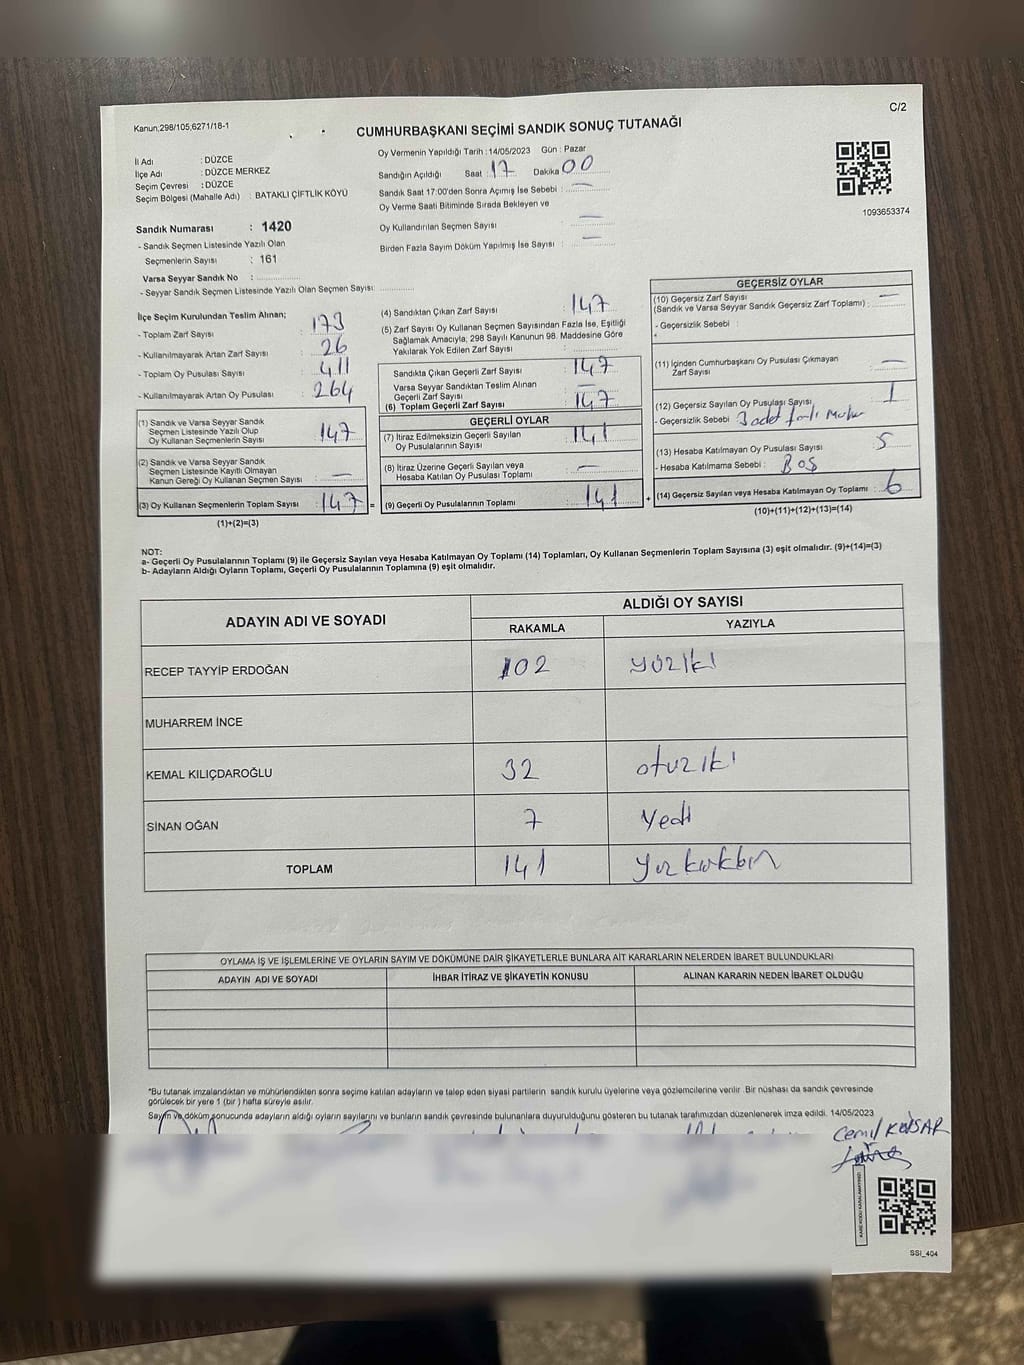 C/2
Kanun;298/105,6271/18-1
CUMHURBAŞKANI SEÇİMİ SANDIK SONUÇ TUTANAĞI
İl Adı : DÜZCE
İlçe Adı : DÜZCE MERKEZ
Seçim Çevresi : DÜZCE
Seçim Bölgesi (Mahalle Adı) : BATAKLI ÇİFTLİK KÖYÜ
Oy Vermenin Yapıldığı Tarih : 14/05/2023 Gün : Pazar
Sandığın Açıldığı Saat : 17 Dakika 00
Sandık Saat 17:00'den Sonra Açımış İse Sebebi : —
Oy Verme Saati Bitiminde Sırada Bekleyen ve
Oy Kullandırılan Seçmen Sayısı : —
Birden Fazla Sayım Döküm Yapılmış İse Sayısı : —
1093653374
Sandık Numarası : 1420
- Sandık Seçmen Listesinde Yazılı Olan
Seçmenlerin Sayısı : 161
Varsa Seyyar Sandık No :
- Seyyar Sandık Seçmen Listesinde Yazılı Olan Seçmen Sayısı:
İlçe Seçim Kurulundan Teslim Alınan;
- Toplam Zarf Sayısı : 173
- Kullanılmayarak Artan Zarf Sayısı : 26
- Toplam Oy Pusulası Sayısı : 411
- Kullanılmayarak Artan Oy Pusulası : 264
(1) Sandık ve Varsa Seyyar Sandık
Seçmen Listesinde Yazılı Olup
Oy Kullanan Seçmenlerin Sayısı : 147
(2) Sandık ve Varsa Seyyar Sandık
Seçmen Listesinde Kayıtlı Olmayan
Kanun Gereği Oy Kullanan Seçmen Sayısı : —
(3) Oy Kullanan Seçmenlerin Toplam Sayısı : 147 =
(1)+(2)=(3)
(4) Sandıktan Çıkan Zarf Sayısı : 147
(5) Zarf Sayısı Oy Kullanan Seçmen Sayısından Fazla İse, Eşitliği
Sağlamak Amacıyla, 298 Sayılı Kanunun 98. Maddesine Göre
Yakılarak Yok Edilen Zarf Sayısı :
Sandıkta Çıkan Geçerli Zarf Sayısı : 147
Varsa Seyyar Sandıktan Teslim Alınan
Geçerli Zarf Sayısı : —
(6) Toplam Geçerli Zarf Sayısı : 147
GEÇERLİ OYLAR
(7) İtiraz Edilmeksizin Geçerli Sayılan
Oy Pusulalarının Sayısı : 141
(8) İtiraz Üzerine Geçerli Sayılan veya
Hesaba Katılan Oy Pusulası Toplamı : —
(9) Geçerli Oy Pusulalarının Toplamı : 141 +
GEÇERSİZ OYLAR
(10) Geçersiz Zarf Sayısı
(Sandık ve Varsa Seyyar Sandık Geçersiz Zarf Toplamı) : —
- Geçersizlik Sebebi :
(11) İçinden Cumhurbaşkanı Oy Pusulası Çıkmayan
Zarf Sayısı : —
(12) Geçersiz Sayılan Oy Pusulası Sayısı : 1
- Geçersizlik Sebebi 3 adet
(13) Hesaba Katılmayan Oy Pusulası Sayısı : 5
- Hesaba Katılmama Sebebi : BOŞ
(14) Geçersiz Sayılan veya Hesaba Katılmayan Oy Toplamı : 6
(10)+(11)+(12)+(13)=(14)
NOT:
a- Geçerli Oy Pusulalarının Toplamı (9) ile Geçersiz Sayılan veya Hesaba Katılmayan Oy Toplamı (14) Toplamları, Oy Kullanan Seçmenlerin Toplam Sayısına (3) eşit olmalıdır. (9)+(14)=(3)
b- Adayların Aldığı Oyların Toplamı, Geçerli Oy Pusulalarının Toplamına (9) eşit olmalıdır.
ADAYIN ADI VE SOYADI ALDIĞI OY SAYISI
RAKAMLA YAZIYLA
RECEP TAYYİP ERDOĞAN 102 yüziki
MUHARREM İNCE
KEMAL KILIÇDAROĞLU 32 otuziki
SİNAN OĞAN 7 Yedi
TOPLAM 141 yuzkırkbir
OYLAMA İŞ VE İŞLEMLERİNE VE OYLARIN SAYIM VE DÖKÜMÜNE DAİR ŞİKAYETLERLE BUNLARA AİT KARARLARIN NELERDEN İBARET BULUNDUKLARI
ADAYIN ADI VE SOYADI İHBAR İTİRAZ VE ŞİKAYETİN KONUSU ALINAN KARARIN NEDEN İBARET OLDUĞU
*Bu tutanak imzalandıktan ve mühürlendikten sonra seçime katılan adayların ve talep eden siyasi partilerin sandık kurulu üyelerine veya gözlemcilerine verilir. Bir nüshası da sandık çevresinde
görülecek bir yere 1 (bir ) hafta süreyle asılır.
Sayım ve döküm sonucunda adayların aldığı oyların sayılarını ve bunların sandık çevresinde bulunanlara duyurulduğunu gösteren bu tutanak tarafımızdan düzenlenerek imza edildi. 14/05/2023
Cemil
KARE KODU KARALAMAYINIZ!
SSİ_404